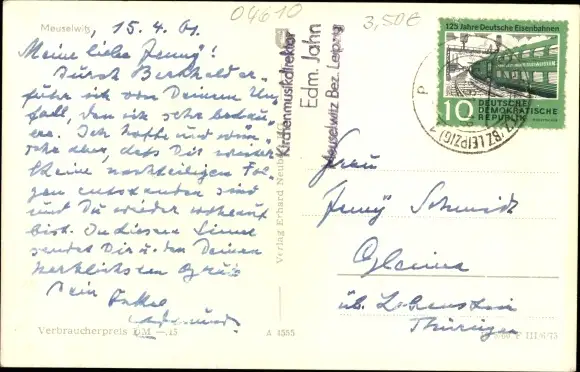 04610
3,50€
Meuselwitz, 15. 4. 61.
Meine liebe Jenny!
Durch Berthold er-
fuhr ich von Deinem Un-
fall, den ich sehr bedau-
ere. Ich hoffe und wün-
sche aber, daß Dir weiter
keine nachteiligen Fol-
gen entstanden sind
und Du wieder wohlauf
bist. In diesem Sinne
sendet Dir u. den Deinen
herzlichsten Gruß
Dein Onkel
Verbraucherpreis DM —.15
A 4555
Verlag Erhard Neu
Kirchenmusikdirektor
Edm. Jahn
Meuselwitz Bez. Leipzig
125 Jahre Deutsche Eisenbahnen
10 DEUTSCHE
DEMOKRATISCHE
REPUBLIK
(BZ. LEIPZIG)
Frau
Jenny Schmidt
Gleima
üb. Lobenstein
Thüringen